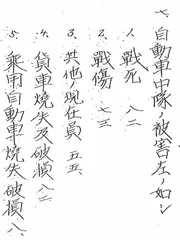 七、自動車中隊ノ被害左ノ如シ
1. 戰死 八二
2. 戰傷 七三
3. 其他ノ現在員 五五
4. 貨車燒失及破損 八二
5. 乘用自動車燒失破損 八